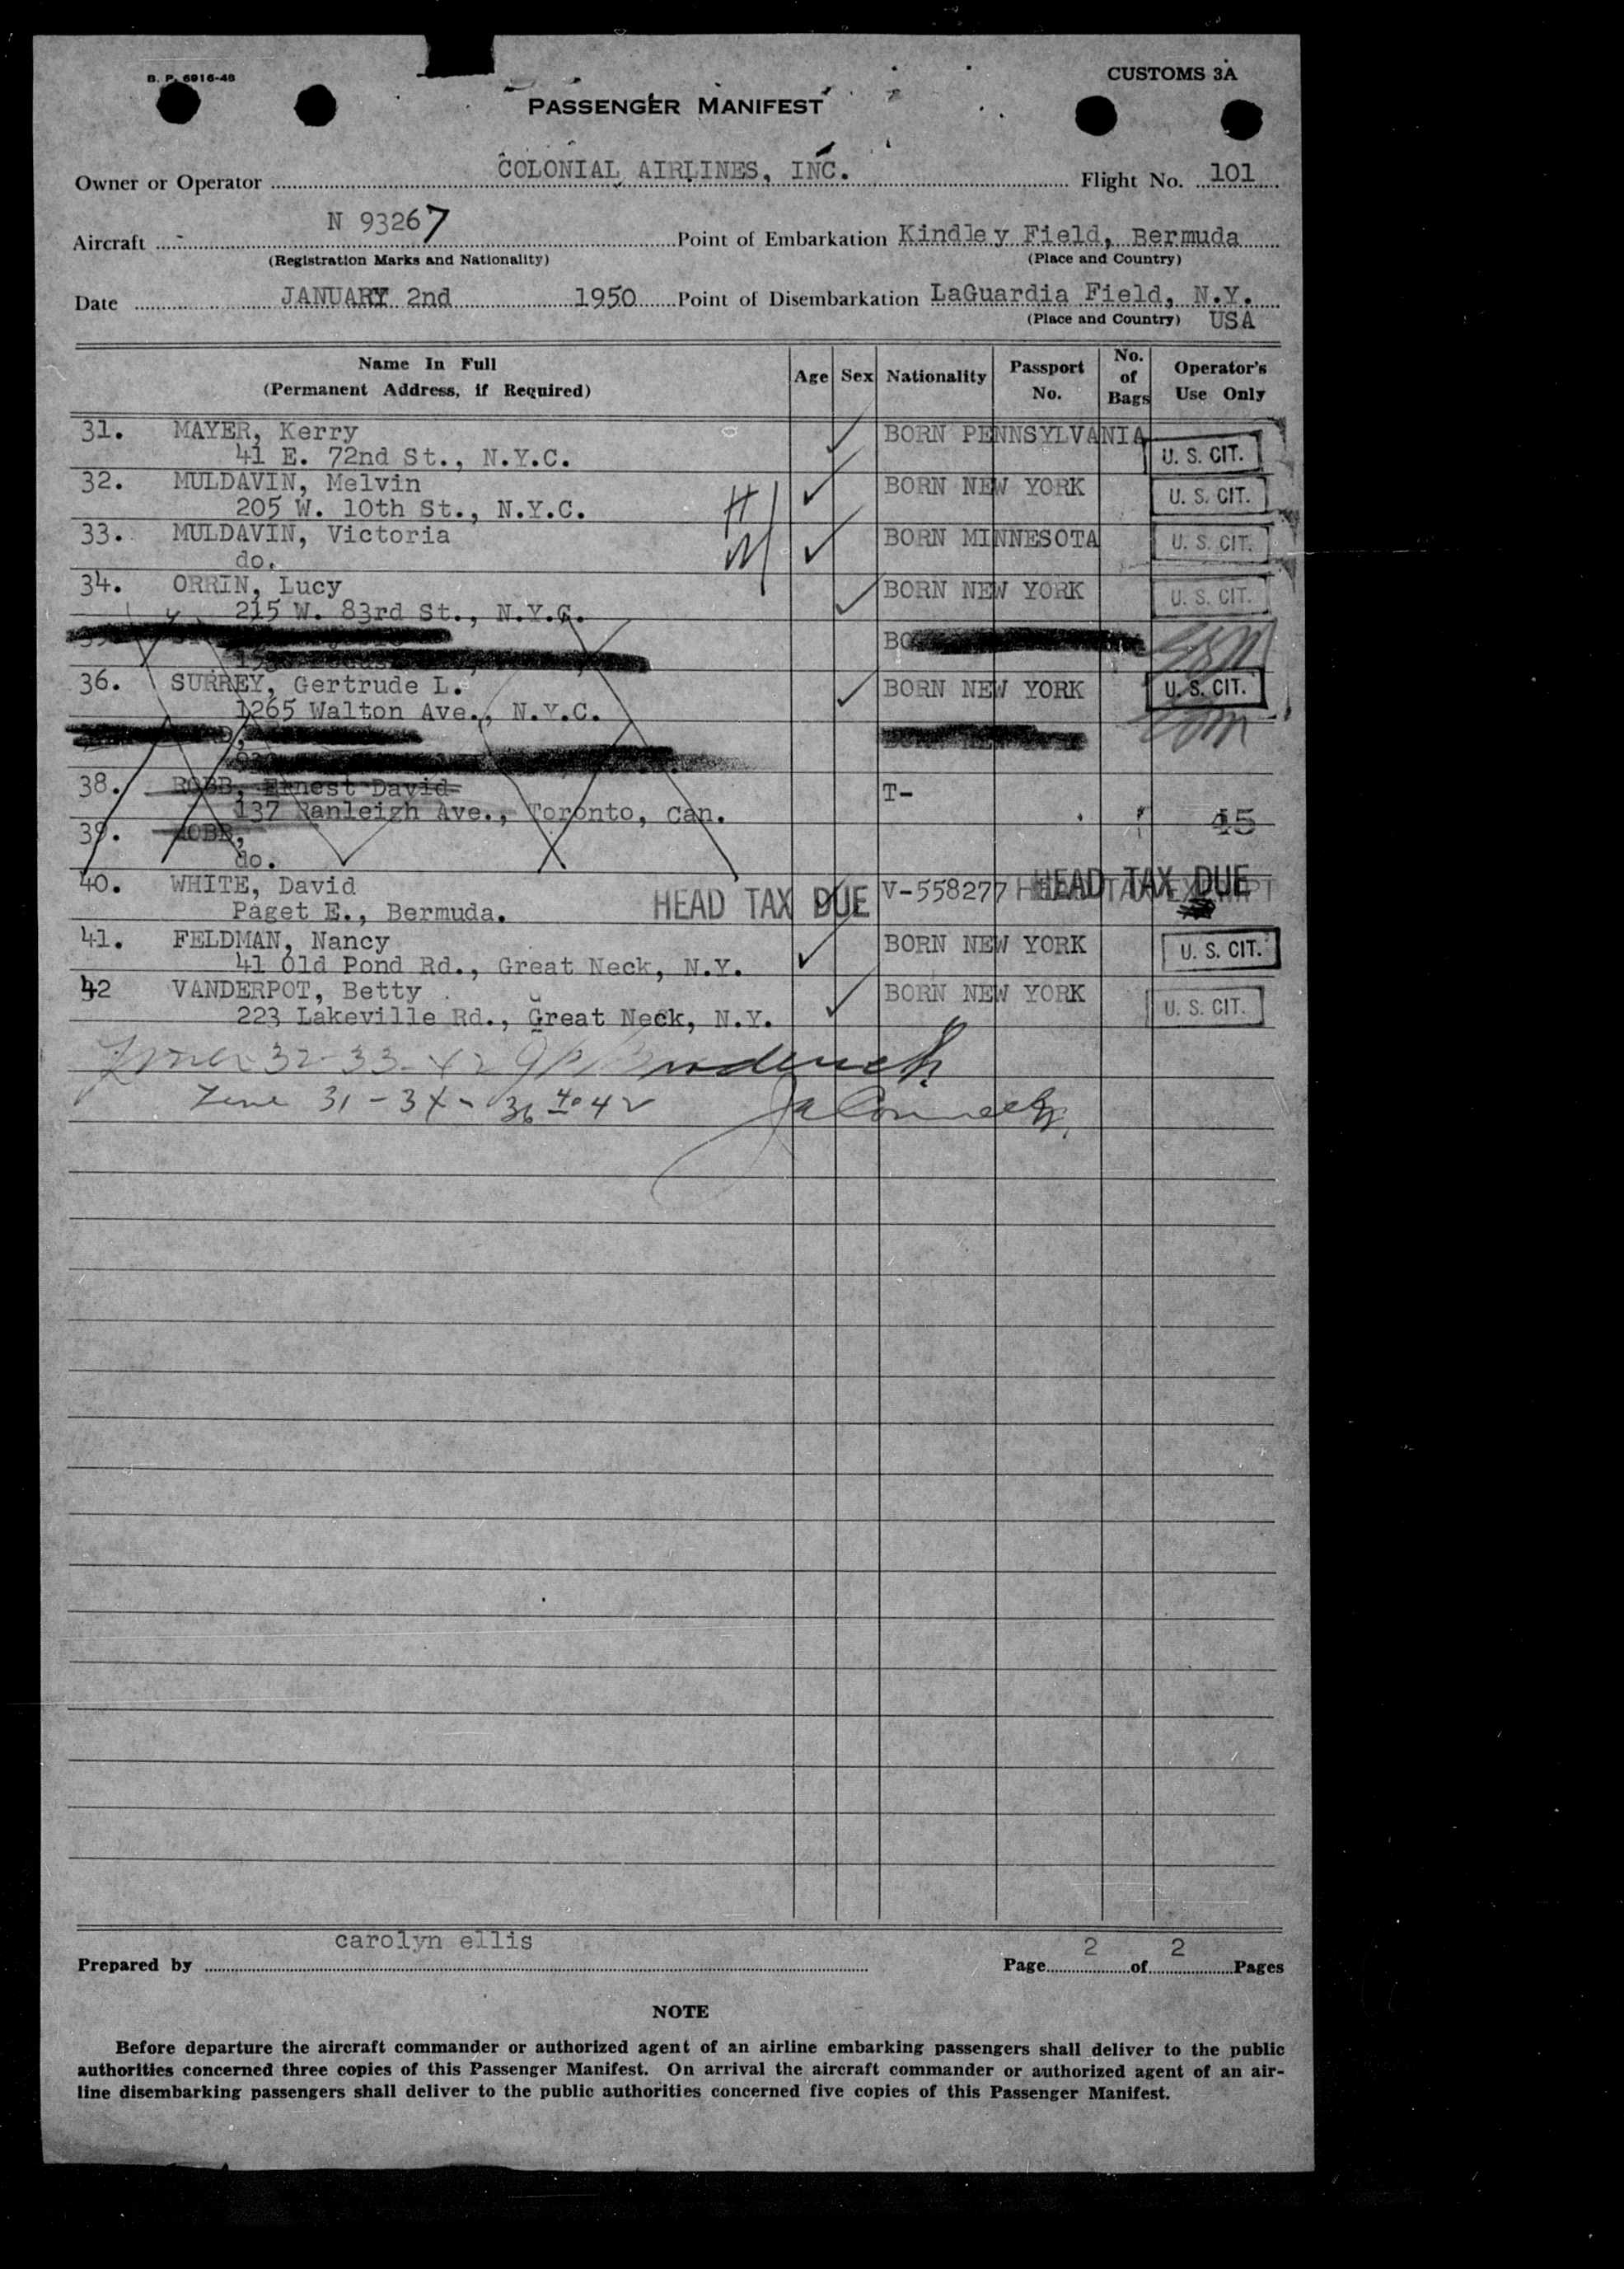 B. P. 6916-48
CUSTOMS 3A
PASSENGER MANIFEST
Owner or Operator COLONIAL AIRLINES, INC. Flight No. 101
Aircraft N 93267 Point of Embarkation Kindley Field, Bermuda
(Registration Marks and Nationality) (Place and Country)
Date JANUARY 2nd 1950 Point of Disembarkation LaGuardia Field, N.Y.
(Place and Country) USA
Name In Full (Permanent Address, if Required) Age Sex Nationality Passport No. No. of Bags Operator's Use Only
31. MAYER, Kerry BORN PENNSYLVANIA U. S. CIT.
41 E. 72nd St., N.Y.C.
32. MULDAVIN, Melvin BORN NEW YORK U. S. CIT.
205 W. 10th St., N.Y.C. H
33. MULDAVIN, Victoria BORN MINNESOTA U. S. CIT.
do. W
34. ORRIN, Lucy BORN NEW YORK U. S. CIT.
215 W. 83rd St., N.Y.C.
36. SURREY, Gertrude L. BORN NEW YORK U. S. CIT.
1265 Walton Ave., N.Y.C.
38. ROBB, Ernest David T-
137 Ranleigh Ave., Toronto, Can. 45
39. ROBB,
do.
40. WHITE, David V-558277 HEAD TAX DUE
Paget E., Bermuda. HEAD TAX DUE
41. FELDMAN, Nancy BORN NEW YORK U. S. CIT.
41 Old Pond Rd., Great Neck, N.Y.
42 VANDERPOT, Betty BORN NEW YORK U. S. CIT.
223 Lakeville Rd., Great Neck, N.Y.
32-33-42
31-34-36 to 42
carolyn ellis
Prepared by Page 2 of 2 Pages
NOTE
Before departure the aircraft commander or authorized agent of an airline embarking passengers shall deliver to the public
authorities concerned three copies of this Passenger Manifest. On arrival the aircraft commander or authorized agent of an air-
line disembarking passengers shall deliver to the public authorities concerned five copies of this Passenger Manifest.